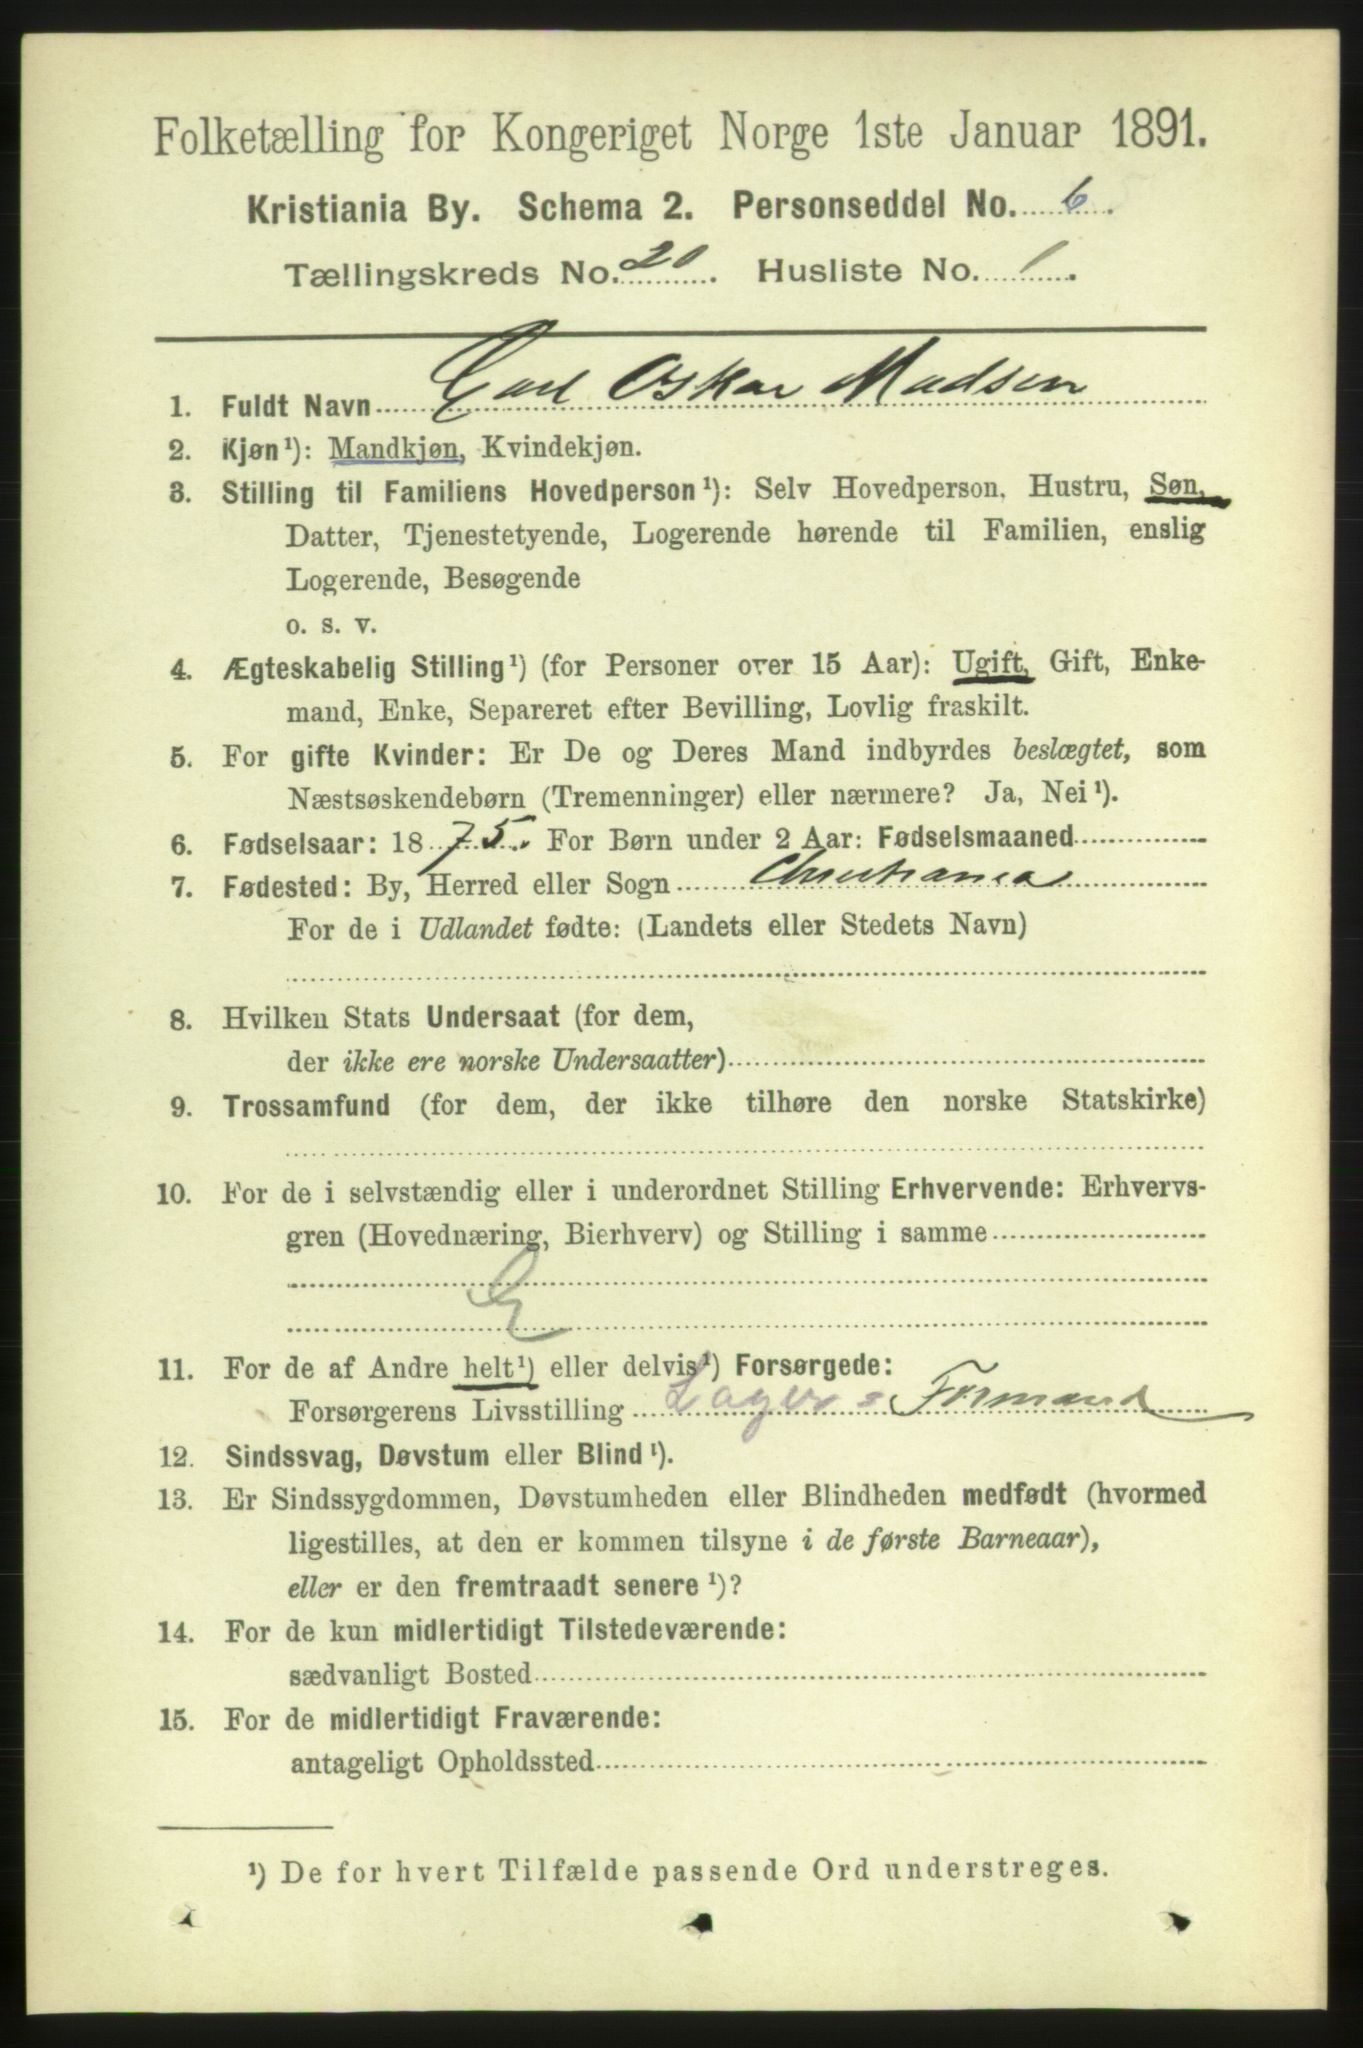 Folketælling for Kongeriget Norge 1ste Januar 1891.
Kristiania By. Schema 2. Personseddel No. 6.
Tællingskreds No. 20. Husliste No. 1.
1. Fuldt Navn Carl Oskar Madsen
2. Kjøn¹): Mandkjøn, Kvindekjøn.
3. Stilling til Familiens Hovedperson¹): Selv Hovedperson, Hustru, Søn,
Datter, Tjenestetyende, Logerende hørende til Familien, enslig
Logerende, Besøgende
o. s. v.
4. Ægteskabelig Stilling¹) (for Personer over 15 Aar): Ugift, Gift, Enke-
mand, Enke, Separeret efter Bevilling, Lovlig fraskilt.
5. For gifte Kvinder: Er De og Deres Mand indbyrdes beslægtet, som
Næstsøskendebørn (Tremenninger) eller nærmere? Ja, Nei¹).
6. Fødselsaar: 1875. For Børn under 2 Aar: Fødselsmaaned
7. Fødested: By, Herred eller Sogn Christiania
For de i Udlandet fødte: (Landets eller Stedets Navn)
8. Hvilken Stats Undersaat (for dem,
der ikke ere norske Undersaatter)
9. Trossamfund (for dem, der ikke tilhøre den norske Statskirke)
10. For de i selvstændig eller i underordnet Stilling Erhvervende: Erhvervs-
gren (Hovednæring, Bierhverv) og Stilling i samme
G
11. For de af Andre helt¹) eller delvis¹) Forsørgede:
Forsørgerens Livsstilling Lager = Formand
12. Sindssvag, Døvstum eller Blind¹).
13. Er Sindssygdommen, Døvstumheden eller Blindheden medfødt (hvormed
ligestilles, at den er kommen tilsyne i de første Barneaar),
eller er den fremtraadt senere¹)?
14. For de kun midlertidigt Tilstedeværende:
sædvanligt Bosted
15. For de midlertidigt Fraværende:
antageligt Opholdssted
¹) De for hvert Tilfælde passende Ord understreges.